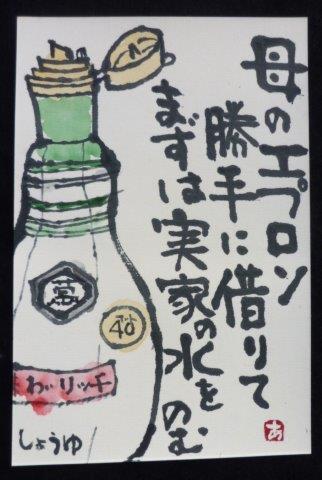 母のエプロン
勝手に借りて
まずは実家の水を
のむ
萬
しょうゆ
あ